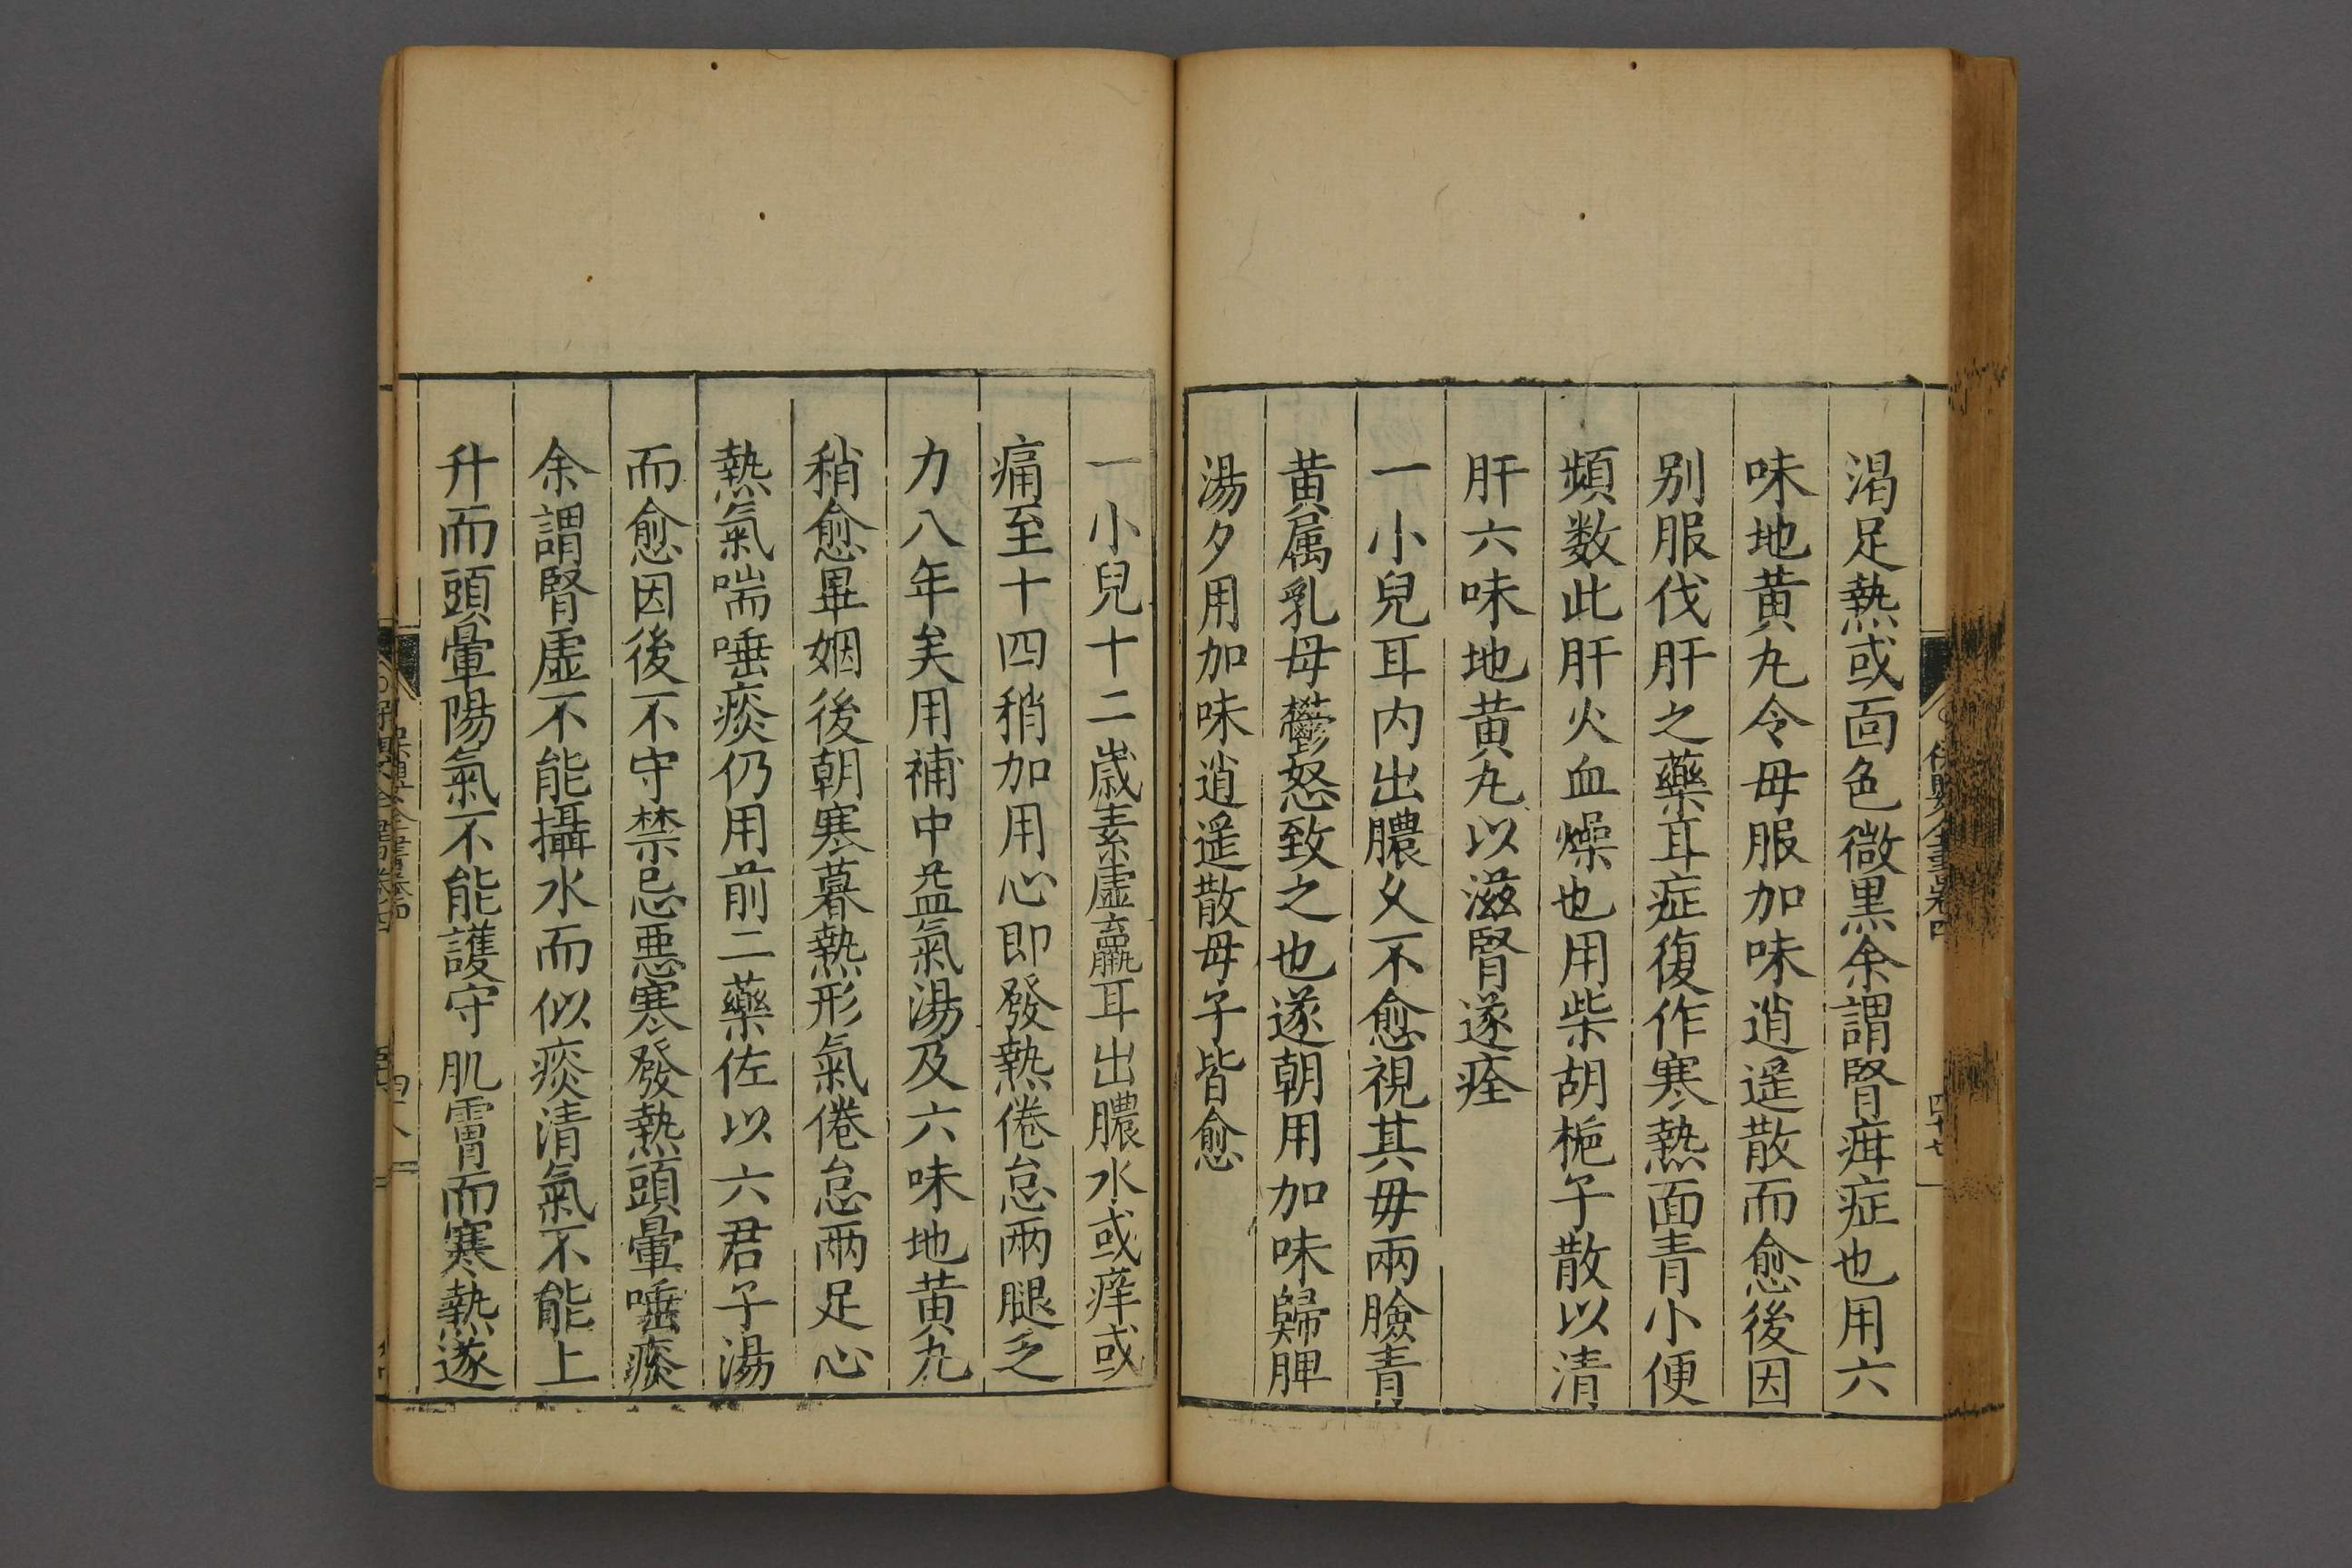 渴足熱或面色微黒余謂腎疳症也用六
味地黄九令母服加味逍遥散而愈後因
别服伐肝之藥耳症復作寒熱面青小便
頻数此肝火血燥也用柴胡梔子散以清
肝六味地黄九以滋腎遂痊
一小兒耳内出膿久不愈視其母兩臉青
黄属乳母鬱怒致之也遂朝用加味歸脾
湯夕用加味逍遥散母子皆愈
四十七
一小兒十二歳素虚羸耳出膿水或痒或
痛至十四稍加用心即發熱倦怠兩腿乏
力八年矣用補中益氣湯及六味地黄九
稍愈畢姻後朝寒暮熱形氣倦怠兩足心
熱氣喘唾痰仍用前二藥佐以六君子湯
而愈因後不守禁忌悪寒發熱頭暈唾痰
余謂腎虚不能攝水而似痰清氣不能上
升而頭暈陽氣不能護守肌膚而寒熱遂